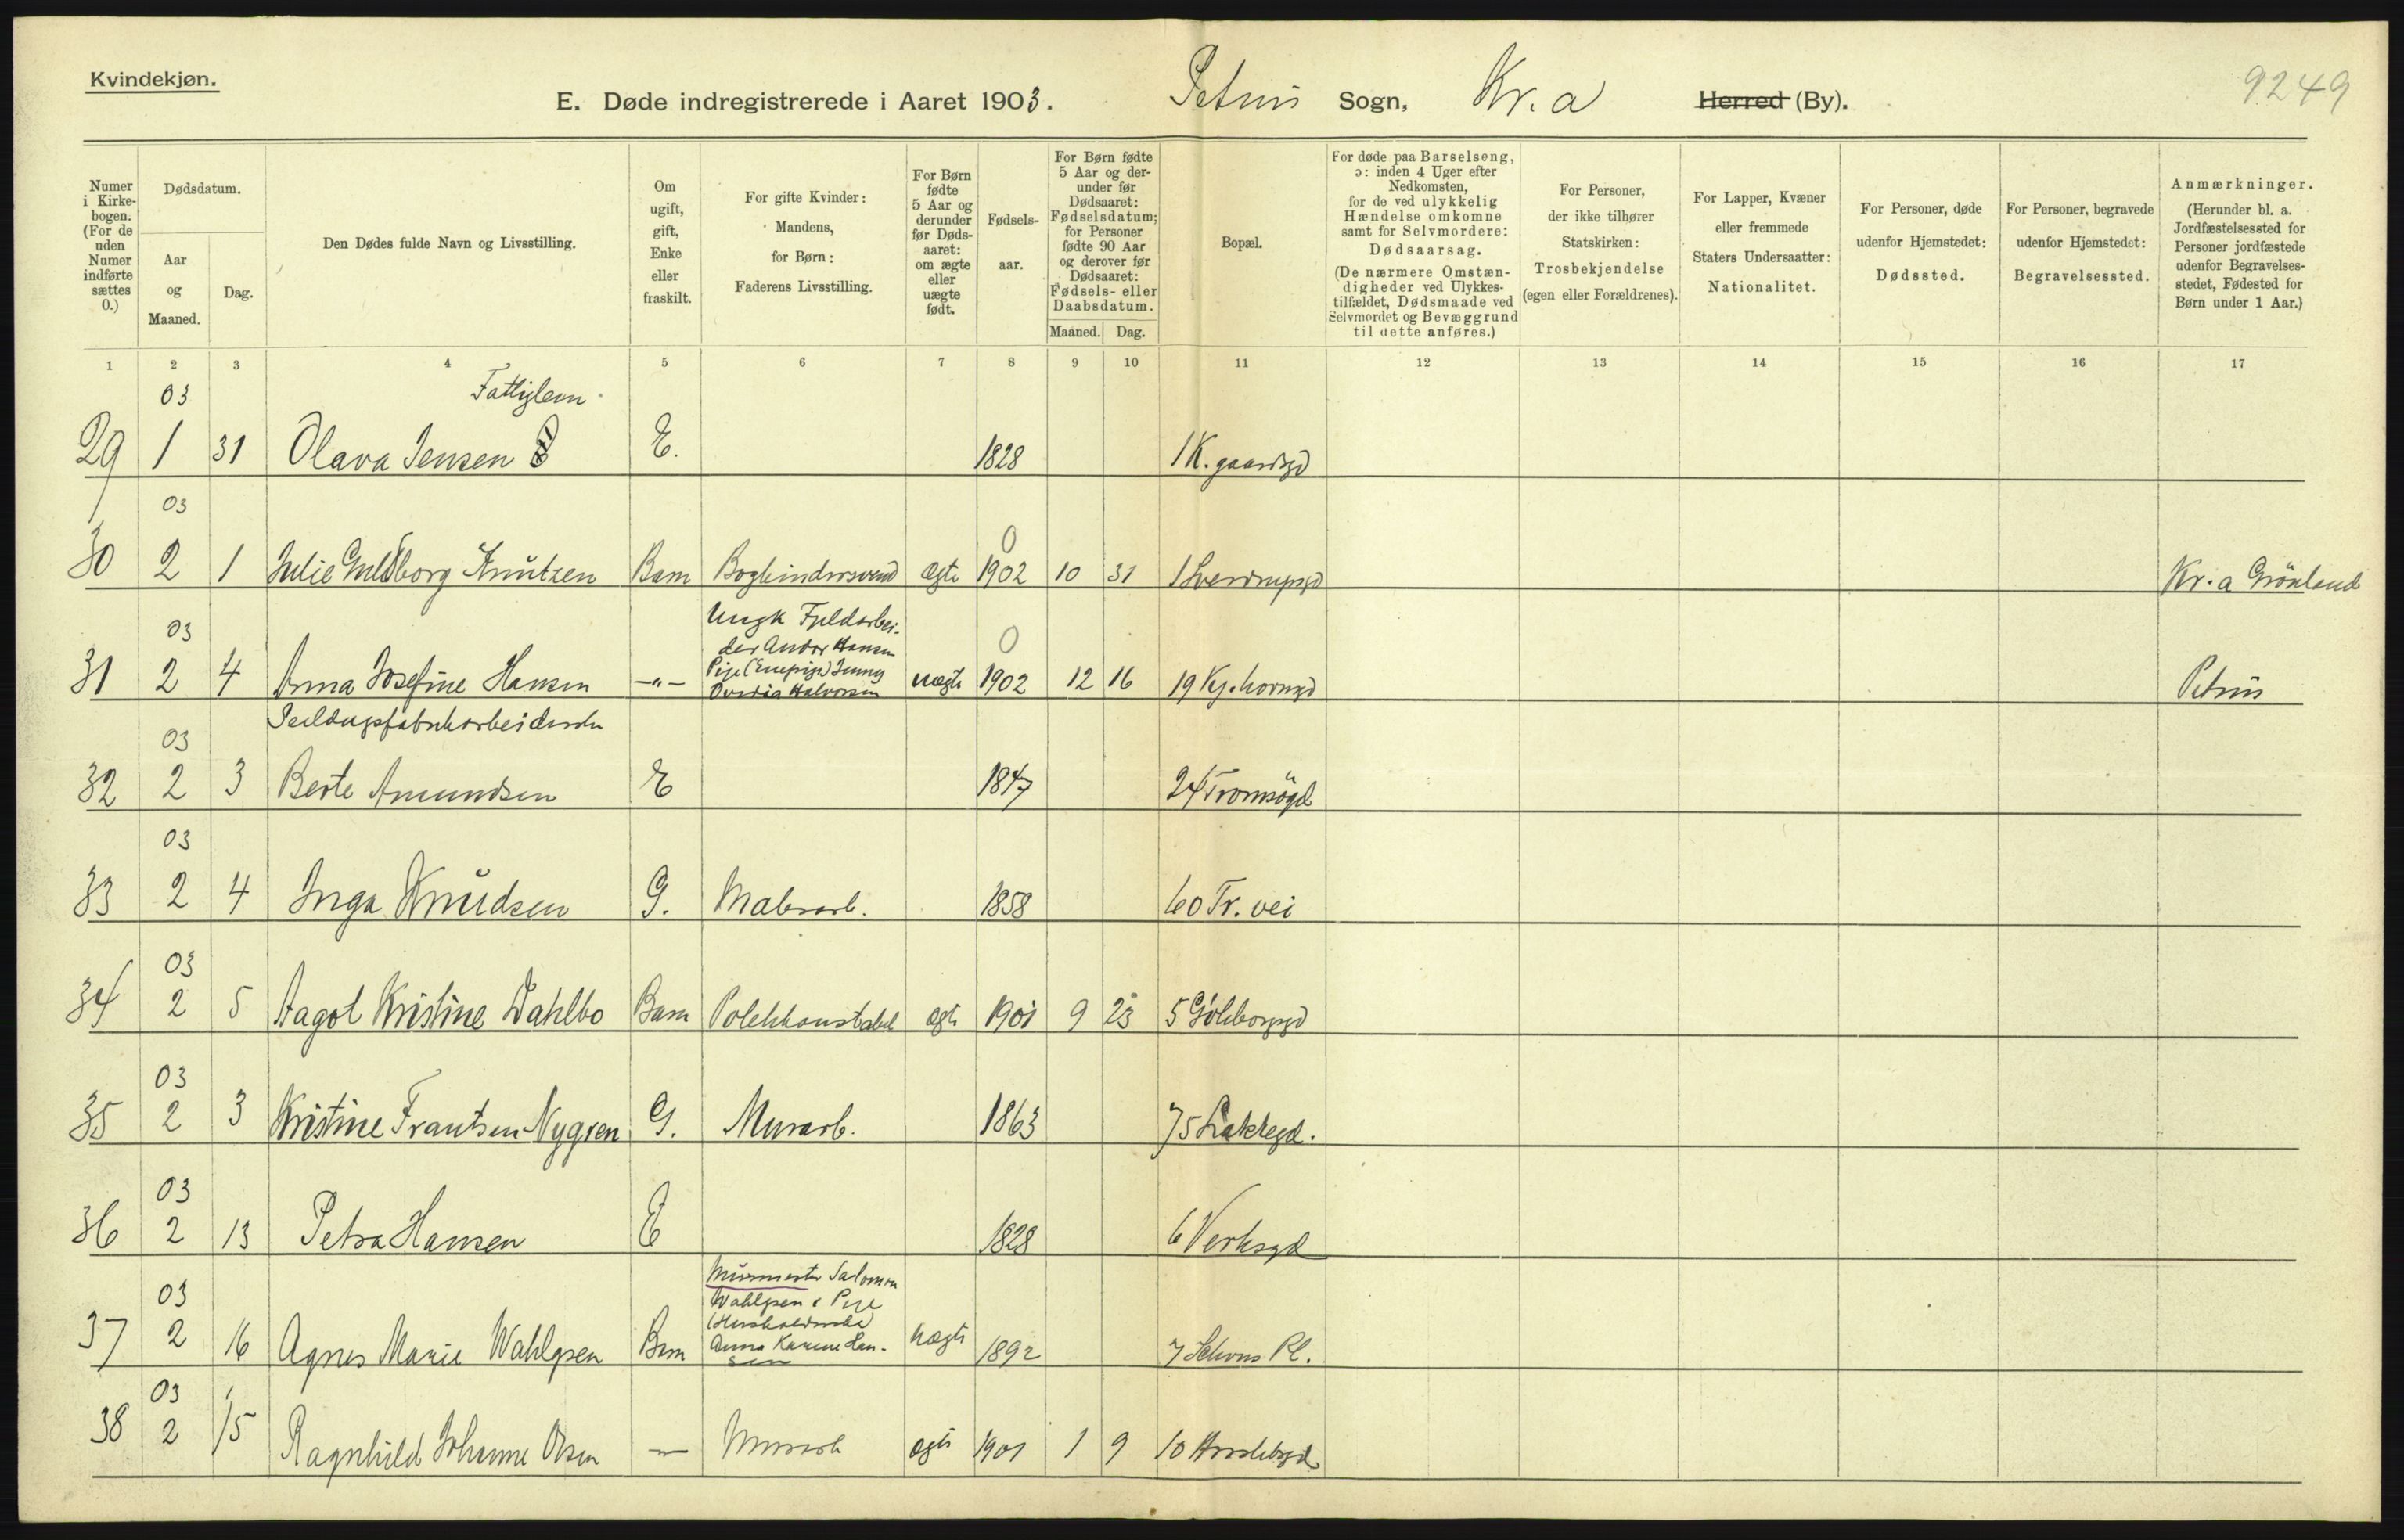 Kvindekjøn.
E. Døde indregistrerede i Aaret 1903. Petrus Sogn, Kr.a Herred (By).
9249
Numer i Kirkebogen. (For de uden Numer indførte sættes 0.)
Dødsdatum.
Aar og Maaned.
Dag.
Den Dødes fulde Navn og Livsstilling.
Om ugift, gift, Enke eller fraskilt.
For gifte Kvinder: Mandens, for Børn: Faderens Livsstilling.
For Børn fødte 5 Aar og derunder før Dødsaaret: om ægte eller uægte født.
Fødselsaar.
For Børn fødte 5 Aar og derunder før Dødsaaret: Fødselsdatum; for Personer fødte 90 Aar og derover før Dødsaaret: Fødsels- eller Daabsdatum.
Maaned. Dag.
Bopæl.
For døde paa Barselseng, ɔ: inden 4 Uger efter Nedkomsten, for de ved ulykkelig Hændelse omkomne samt for Selvmordere: Dødsaarsag. (De nærmere Omstændigheder ved Ulykkestilfældet, Dødsmaade ved Selvmordet og Bevæggrund til dette anføres.)
For Personer, der ikke tilhører Statskirken: Trosbekjendelse (egen eller Forældrenes).
For Lapper, Kvæner eller fremmede Staters Undersaatter: Nationalitet.
For Personer, døde udenfor Hjemstedet: Dødssted.
For Personer, begravede udenfor Hjemstedet: Begravelsessted.
Anmærkninger. (Herunder bl. a. Jordfæstelsessted for Personer jordfæstede udenfor Begravelsesstedet, Fødested for Børn under 1 Aar.)
1 2 3 4 5 6 7 8 9 10 11 12 13 14 15 16 17
03 Fattiglem
29 1 31 Olava Jensen E. 1828 1 K.gaardsgd
03 0
30 2 1 Julie Guldborg Knutzen Barn Bogbindersvend ægte 1902 10 31 1 Sverdrupsgd Kr.a Grönland
Ungk Fjeldarbei-
03 der Andor Hansen 0
Pige (Enepige) Jenny
31 2 4 Anna Josefine Hansen -"- Ovedia Halvorsen uægte 1902 12 16 19 Kj.hovngd Petrus
03 Seildugsfabrikarbeiderske
32 2 3 Berte Amundsen E 1847 24 Tromsögd
03
33 2 4 Inga Knudsen G. Malerarb. 1858 60 Tr. vei
03
34 2 5 Aagot Kristine Dahlbo Barn Politikonstabel ægte 1901 9 23 5 Göteborggd
03
35 2 3 Kristine Frantsen Nygren G. Murarb. 1863 75 Lakkegd.
03
36 2 13 Petra Hansen E 1828 6 Verksgd
Murmester Salomon
03 Wahlgsen & Pige
(Husholderske)
37 2 16 Agnes Marie Wahlgsen Barn Anna Karine Han- uægte 1892 7 Schous Pl.
sen
03
38 2 15 Ragnhild Johanne Olsen — Murarb ægte 1901 1 9 10